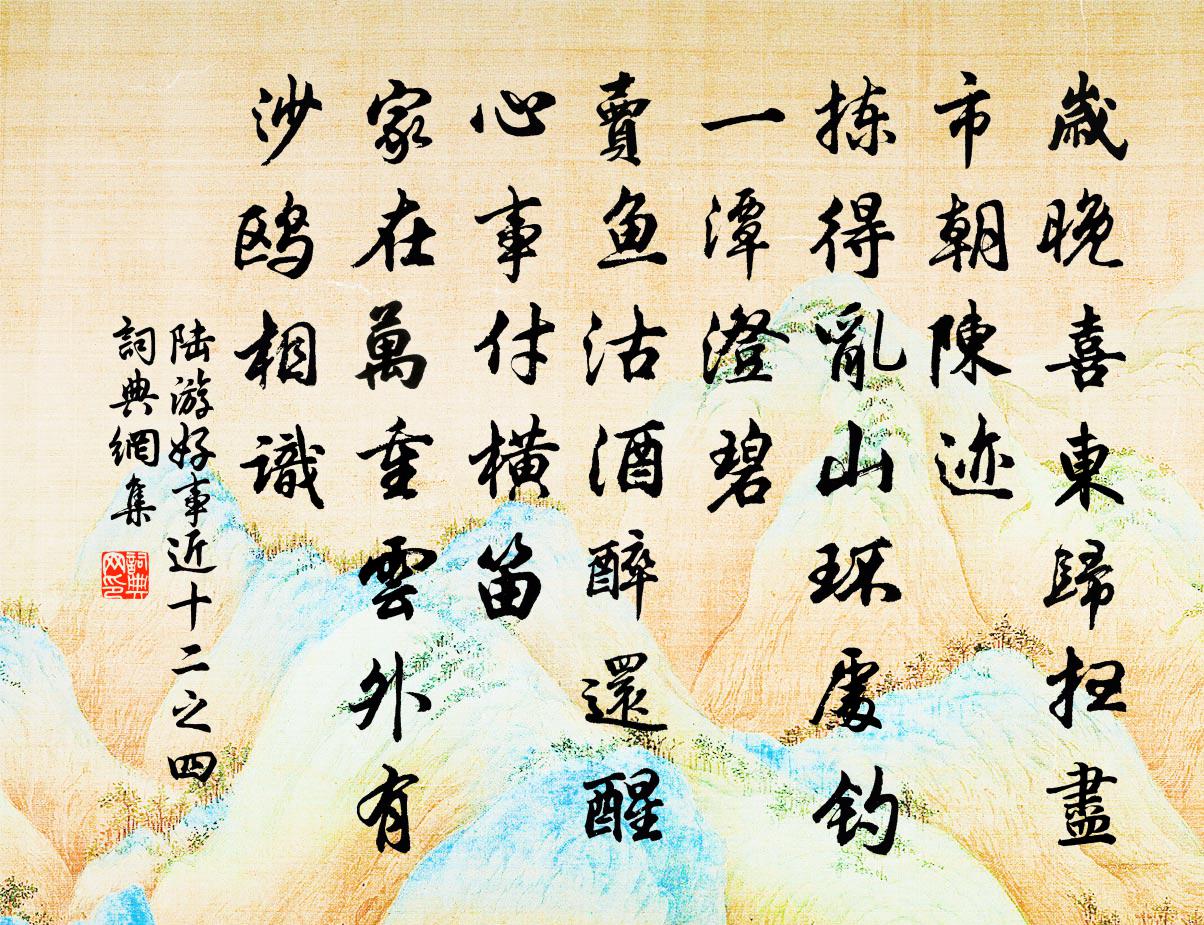 歲晚喜東歸掃盡
市朝陳迹
揀得亂山環處釣
一潭澄碧
賣魚沽酒醉還醒
心事付橫笛
家在萬重雲外有
沙鸥相識
陆游好事近十二之四
詞典網集
詞典网印